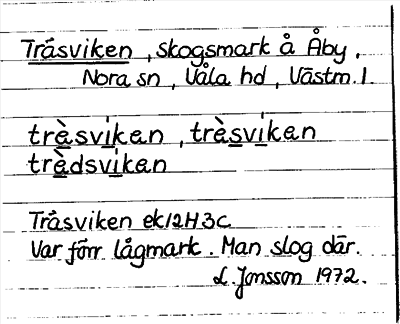 Träsviken, skogsmark å Åby,
Nora sn, Våla hd, Västm. l.
trä̀svíkan, trä̀svíkan
trä̀dsvíkan
Träsviken ek 12H3c
Var förr lågmark. Man slog där.
L. Jonsson 1972.